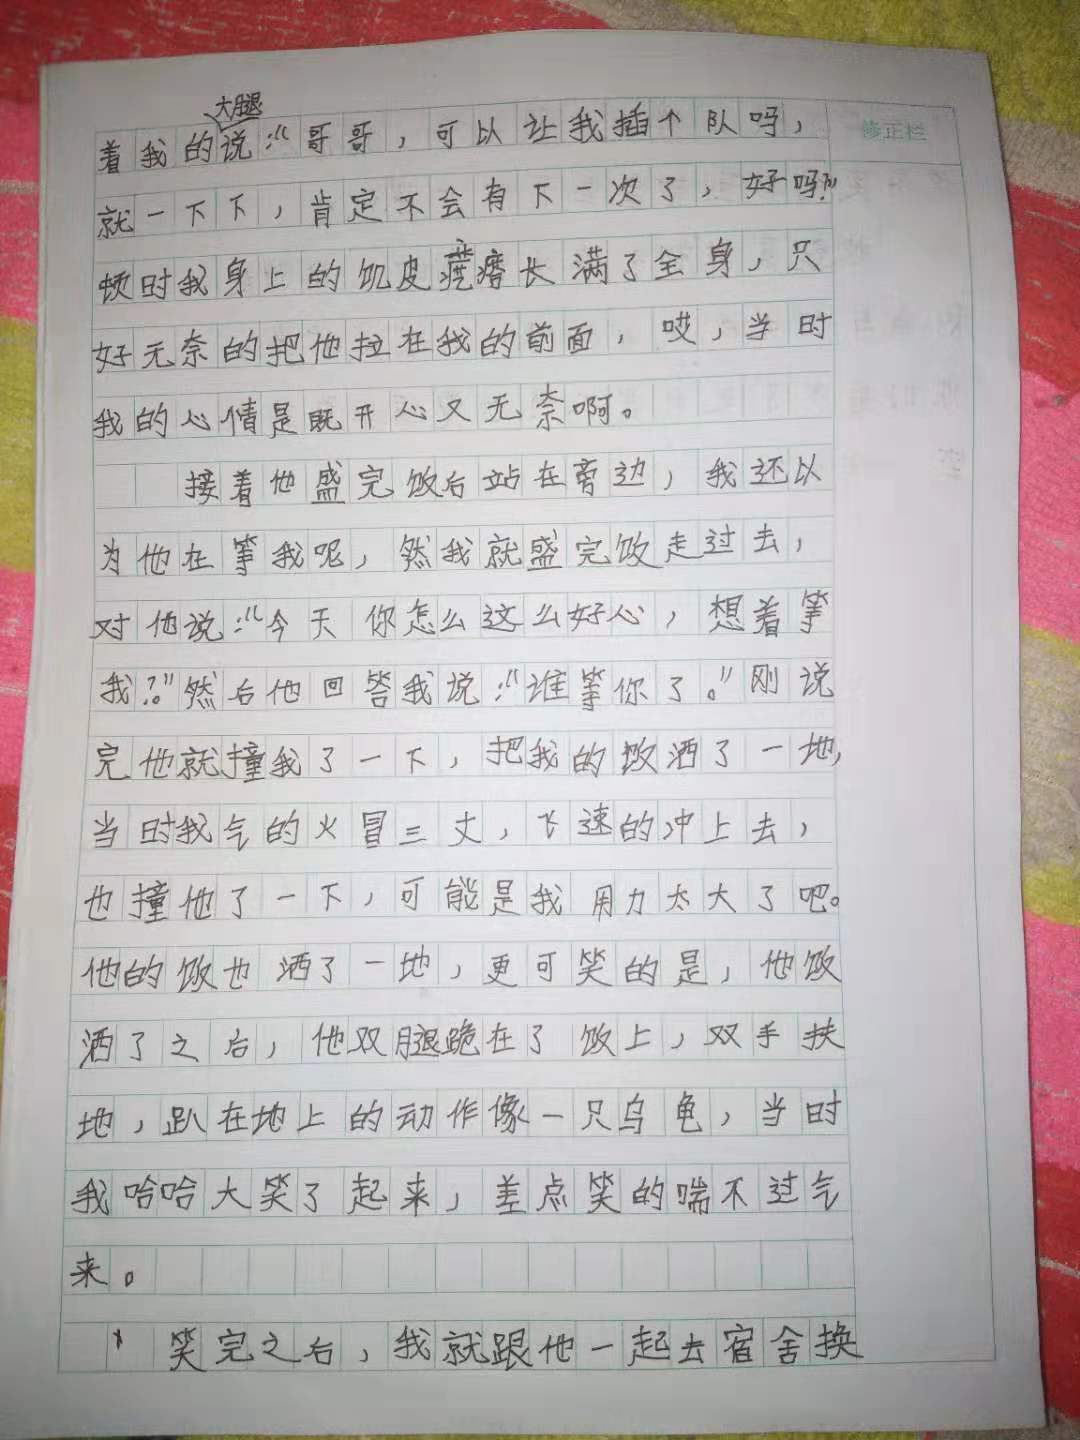 大腿
着我的说:“哥哥，可以让我插个队吗，
修正栏
就一下下，肯定不会有下一次了，好吗?”
顿时我身上的饥皮疙瘩长满了全身，只
好无奈的把他拉在我的前面，哎，当时
我的心情是既开心又无奈啊。
接着他盛完饭后站在旁边，我还以
为他在等我呢，然我就盛完饭走过去，
对他说:“今天你怎么这么好心，想着等
我?”然后他回答我说:“谁等你了。”刚说
完他就撞我了一下，把我的饭洒了一地，
当时我气的火冒三丈，飞速的冲上去，
也撞他了一下，可能是我用力太大了吧。
他的饭也洒了一地，更可笑的是，他饭
洒了之后，他双腿跪在了饭上，双手扶
地，趴在地上的动作像一只乌龟，当时
我哈哈大笑了起来，差点笑的喘不过气
来。
笑完之后，我就跟他一起去宿舍换